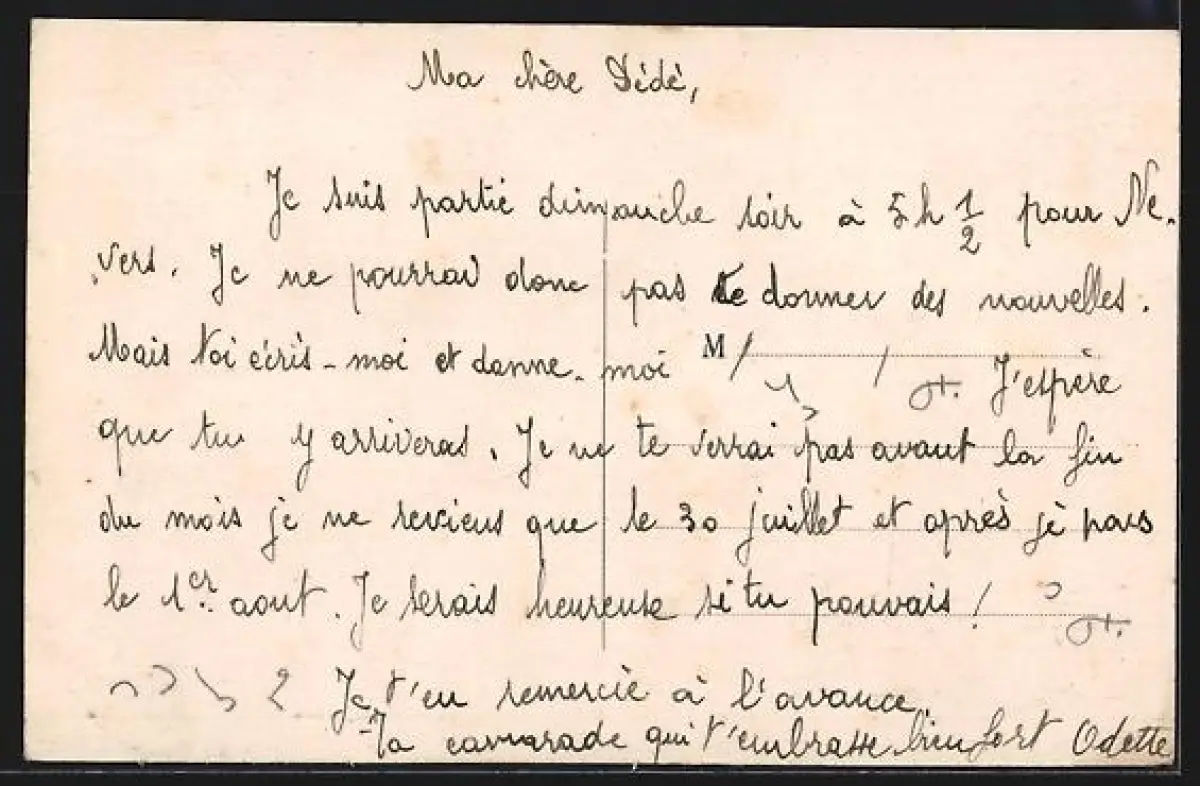 Ma chère Dédé,
Je suis partie dimanche soir à 5h 1/2 pour Ne-
vers. Je ne pourrai donc pas te donner des nouvelles.
Mais toi écris-moi et donne-moi M J'espère
que tu y arriveras. Je ne te verrai pas avant la fin
du mois je ne reviens que le 30 juillet et après je pars
le 1er aout. Je serais heureuse si tu pouvais !
Je t'en remercie à l'avance.
Ta camarade qui t'embrasse bien fort Odette